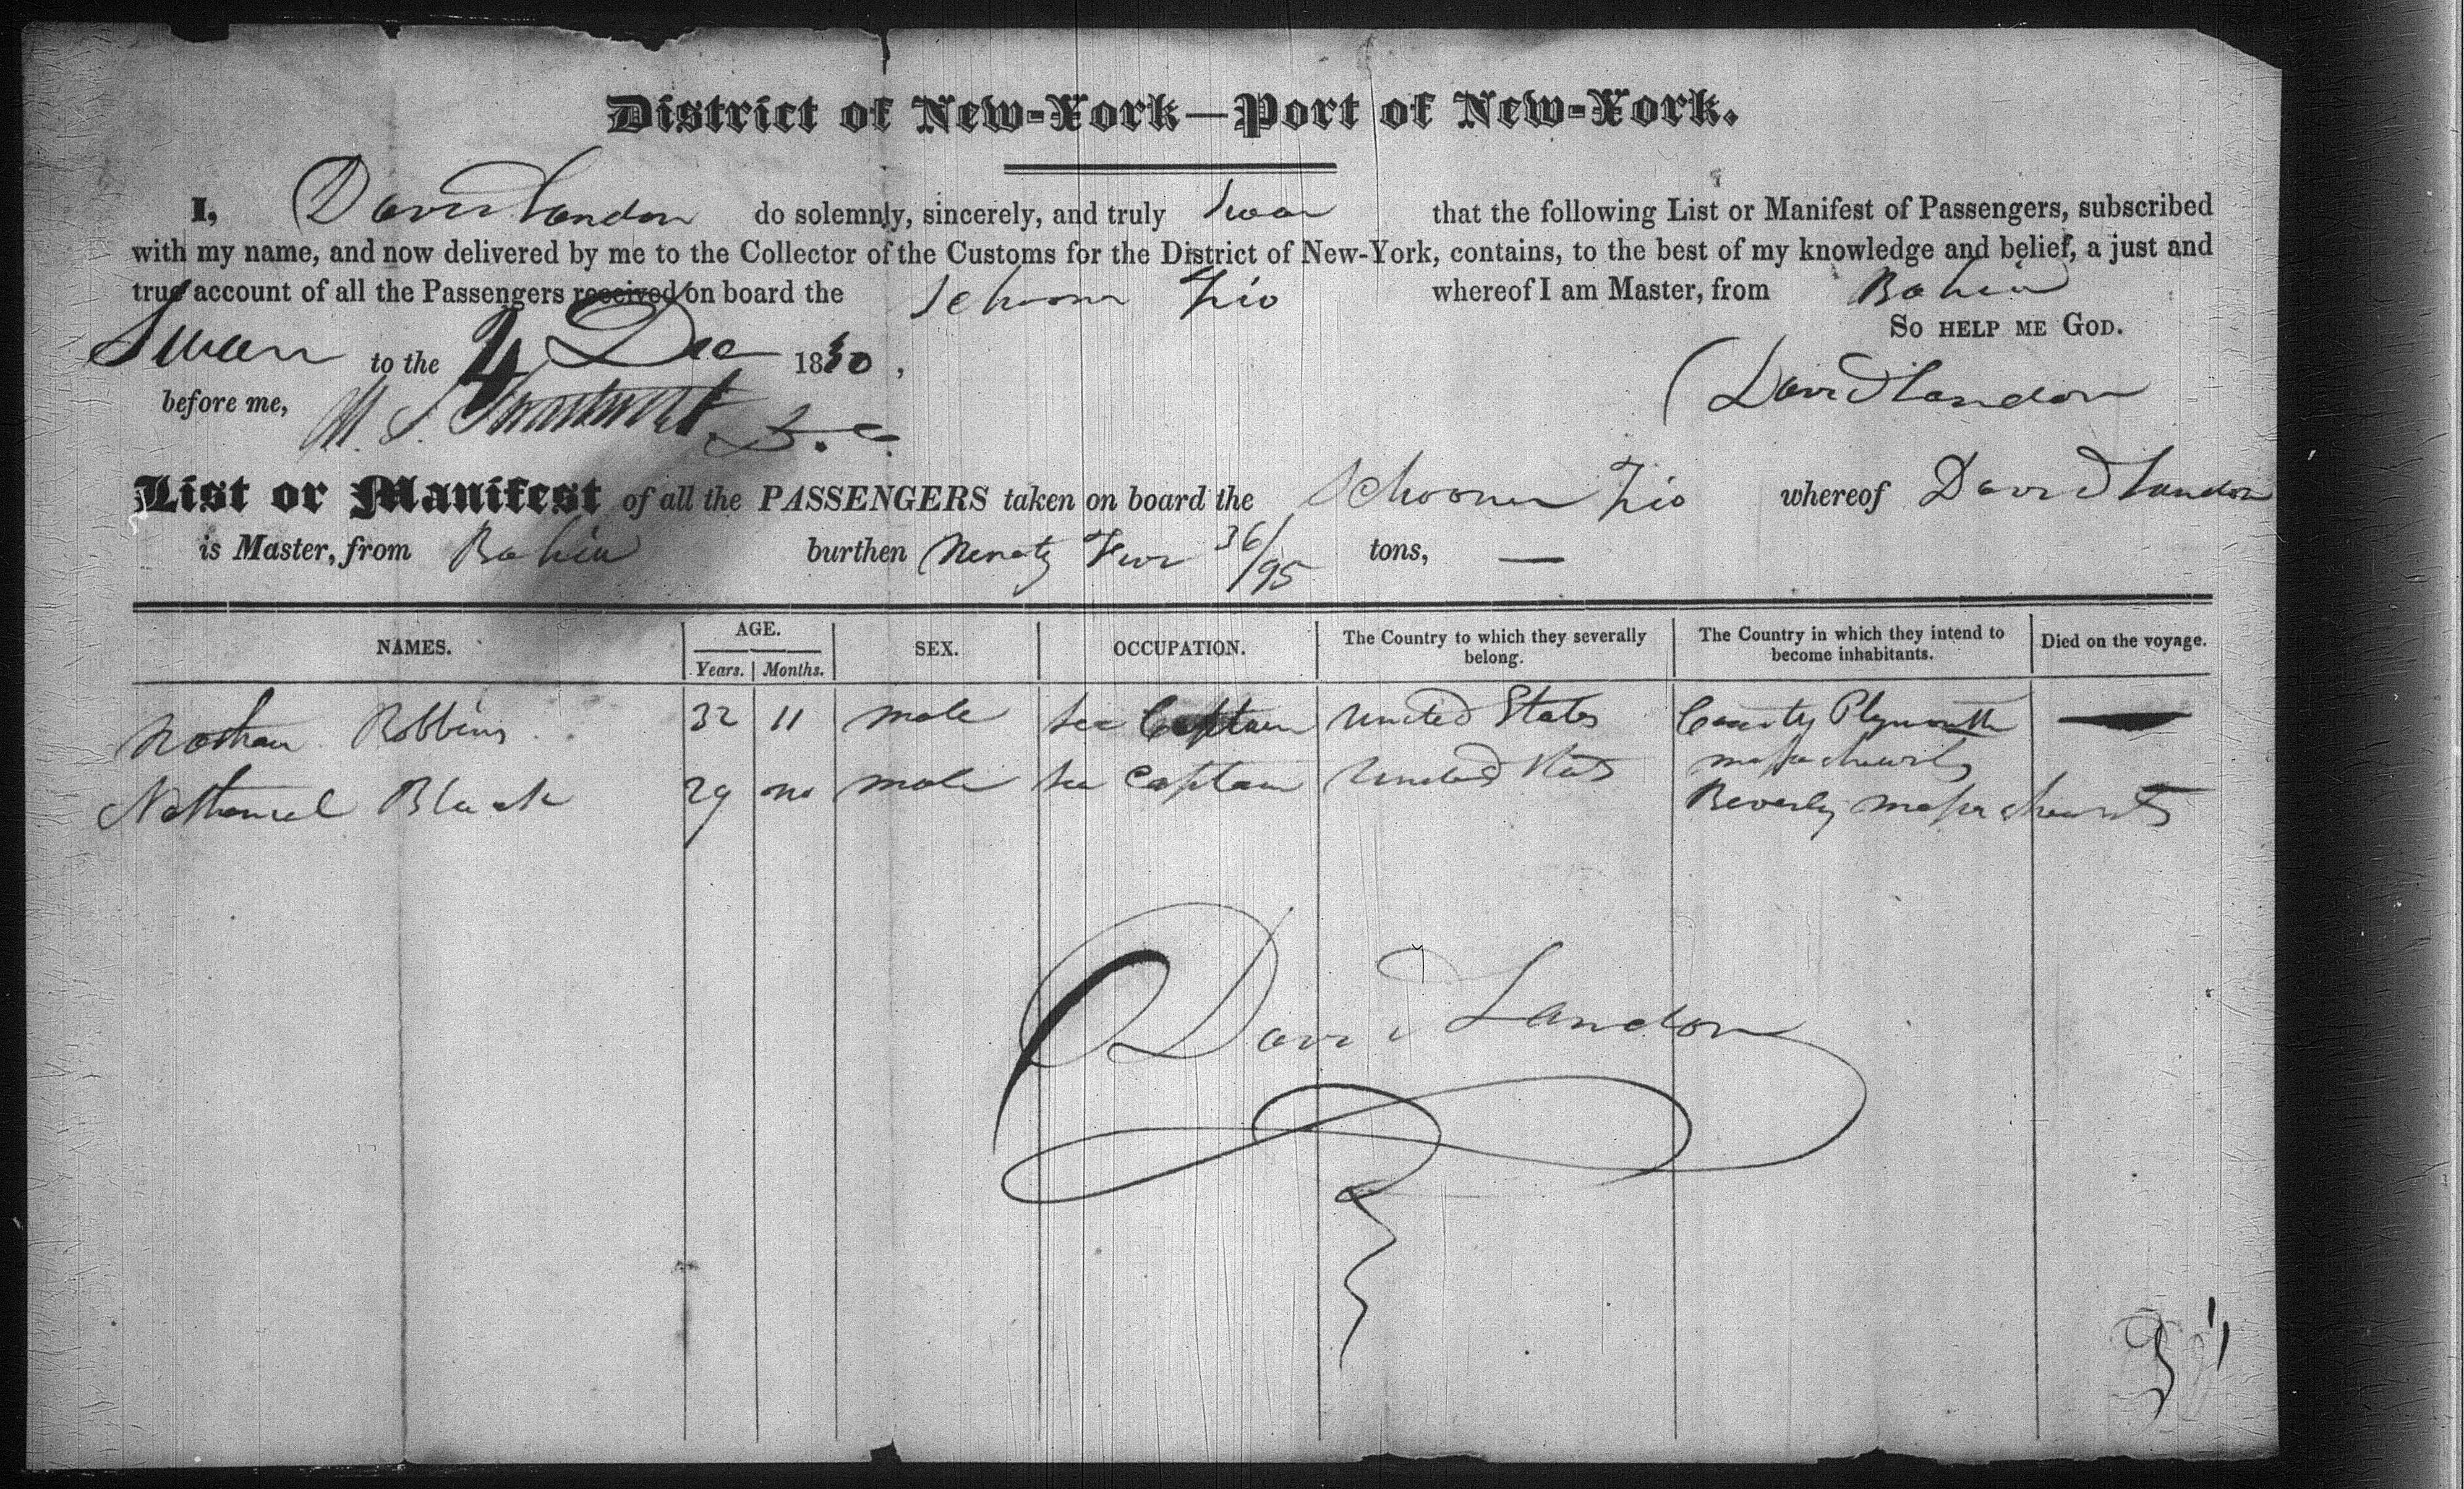 District of New-York—Port of New-York.
I, David Landon do solemnly, sincerely, and truly swear that the following List or Manifest of Passengers, subscribed
with my name, and now delivered by me to the Collector of the Customs for the District of New-York, contains, to the best of my knowledge and belief, a just and
true account of all the Passengers received on board the Schooner whereof I am Master, from Bahia
So help me God.
Sworn to the 4 Dec 1830,
David Landon
before me,
List or Manifest of all the PASSENGERS taken on board the Schooner whereof David Landon
is Master, from Bahia burthen 36/95 tons, —
NAMES. AGE. SEX. OCCUPATION. The Country to which they severally belong. The Country in which they intend to become inhabitants. Died on the voyage.
Years. Months.
Nathan Robbins 32 11 male Sea Captain United States County Plymouth —
Massachusetts
Nathaniel Black 29 no male Sea Captain United States Beverly Massachusetts
David Landon